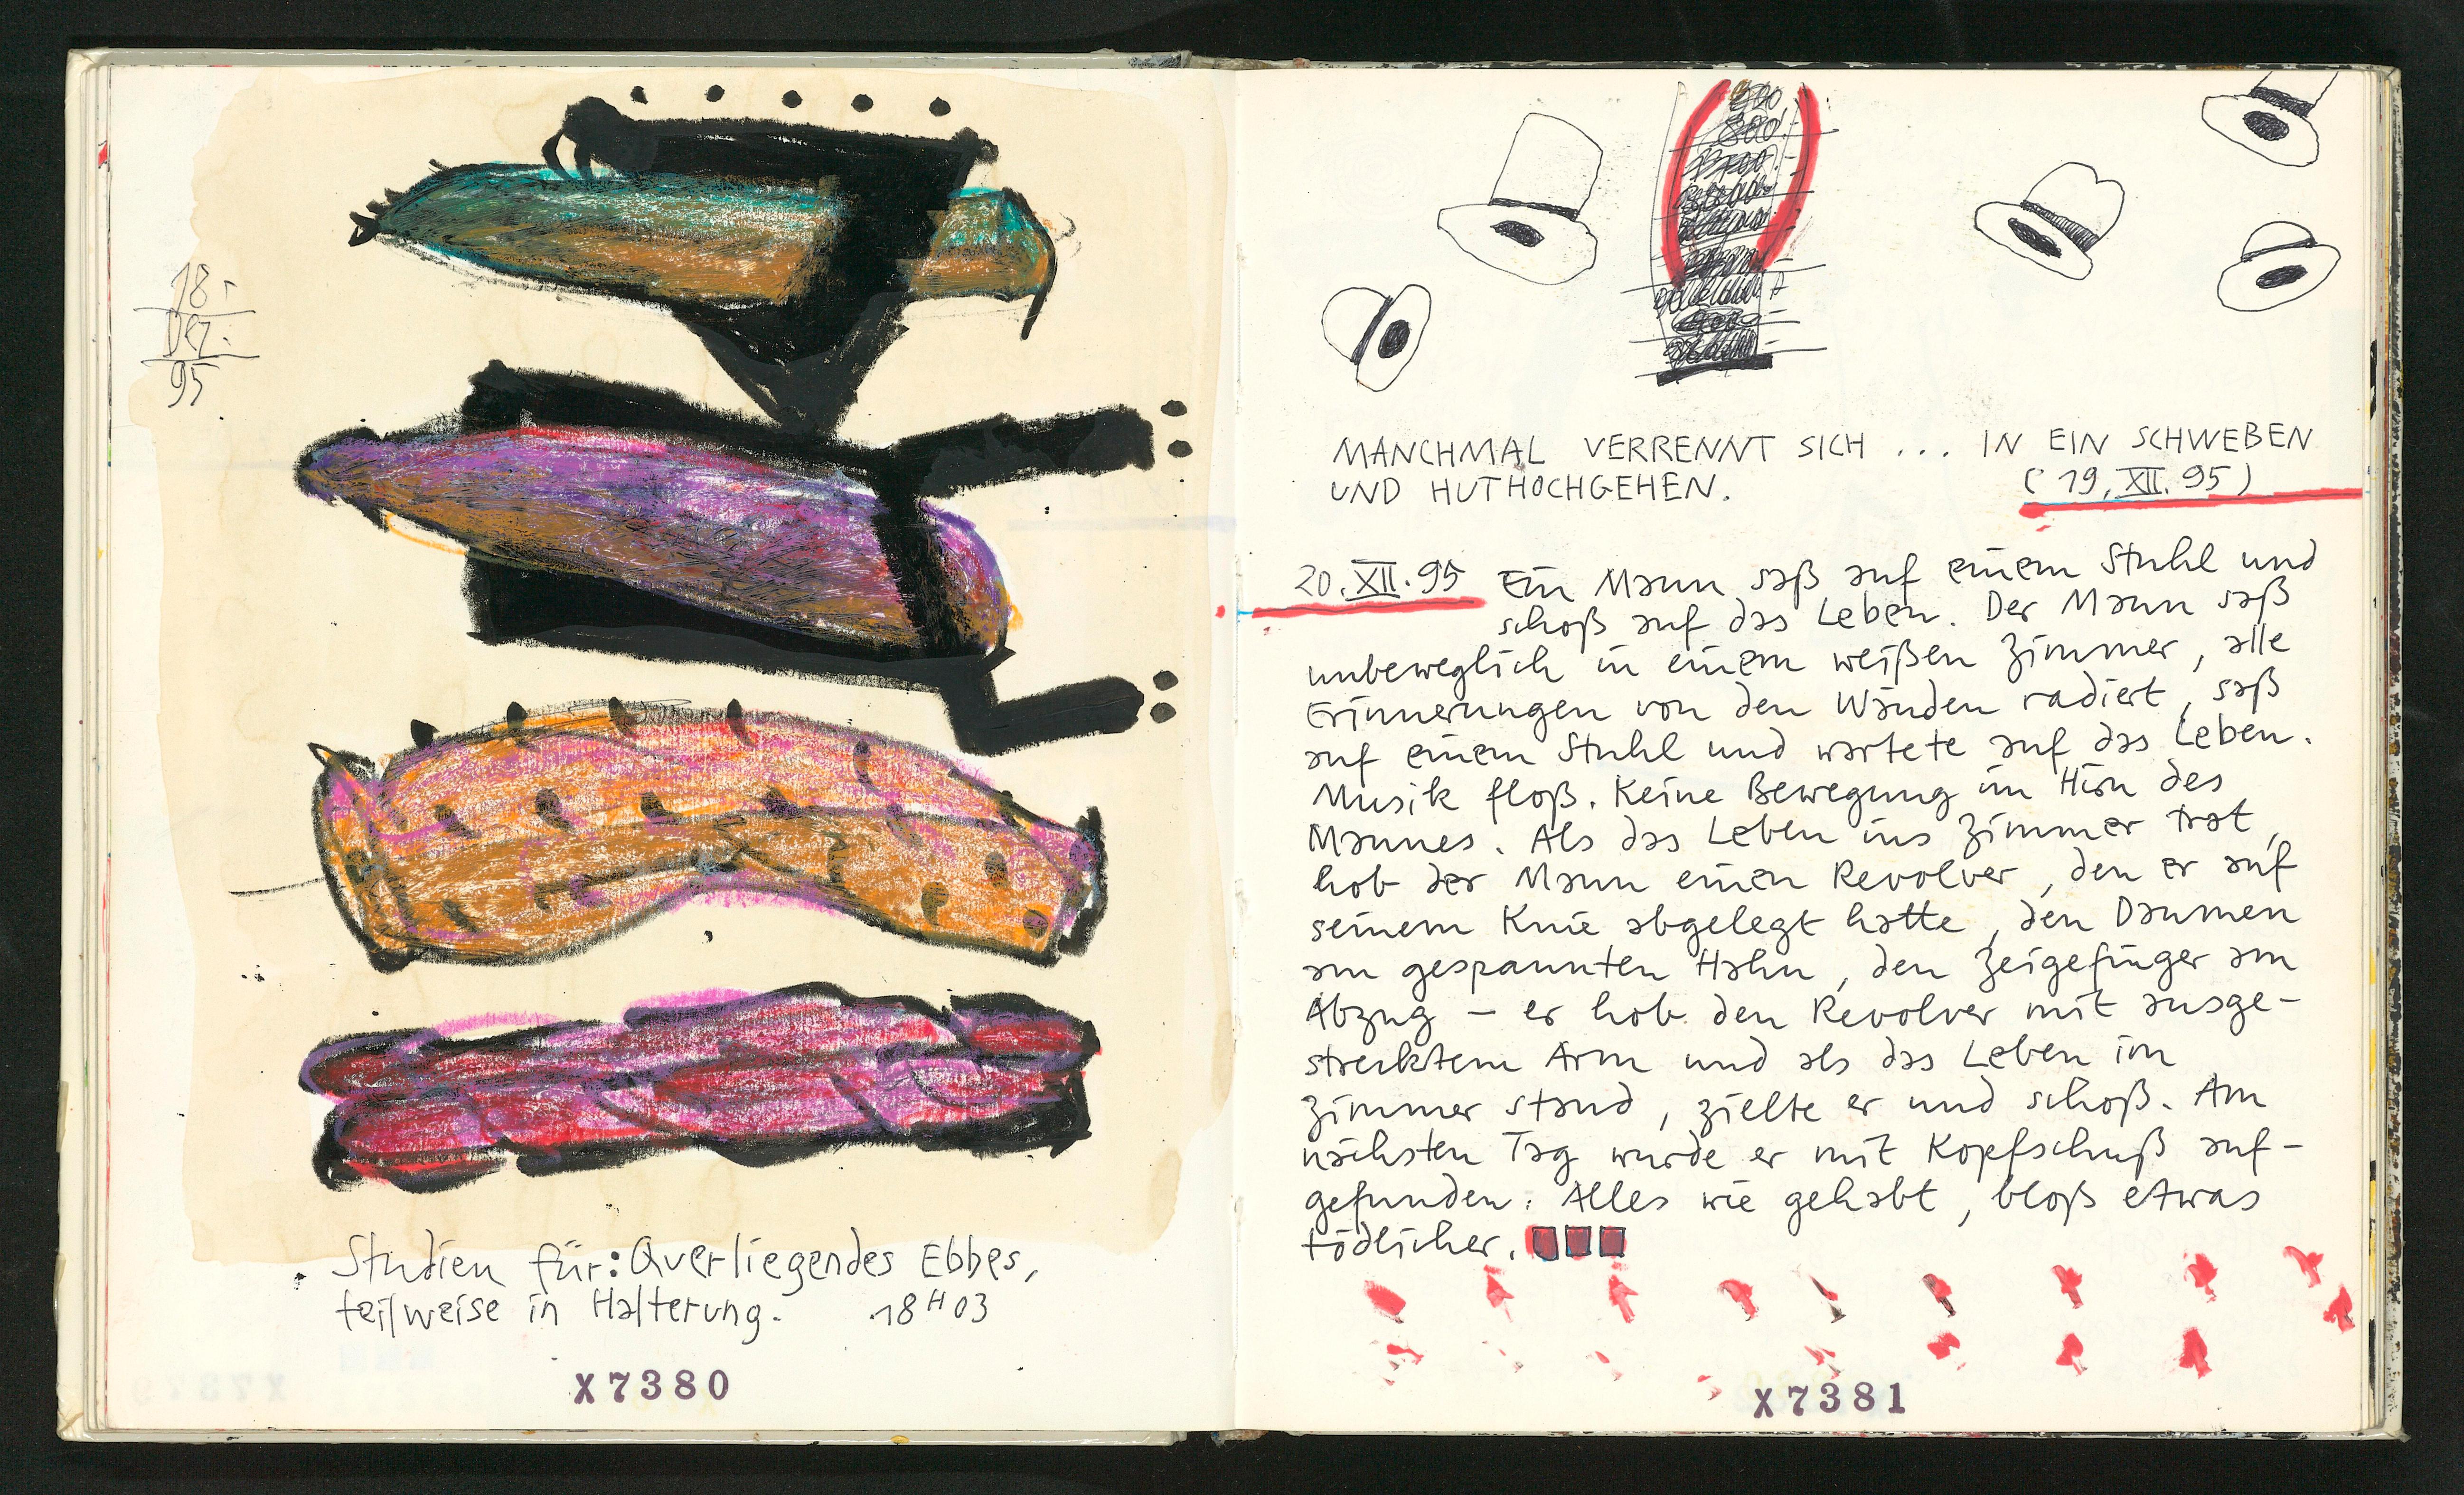 18.
Dez.
95
Studien für: Querliegendes Ebbes,
teilweise in Halterung. 18H03
X7380
MANCHMAL VERRENNT SICH ... IN EIN SCHWEBEN
UND HUTHOCHGEHEN. (19. XII. 95)
20. XII. 95 Ein Mann saß auf einem Stuhl und
schoß auf das Leben. Der Mann saß
unbeweglich in einem weißen Zimmer, alle
Erinnerungen von den Wänden radiert, saß
auf einem Stuhl und wartete auf das Leben.
Musik floß. Keine Bewegung im Hirn des
Mannes. Als das Leben ins Zimmer trat,
hob der Mann einen Revolver, den er auf
seinem Knie abgelegt hatte, den Daumen
am gespannten Hahn, den Zeigefinger am
Abzug – er hob den Revolver mit ausge-
strecktem Arm und als das Leben im
Zimmer stand, zielte er und schoß. Am
nächsten Tag wurde er mit Kopfschuß auf-
gefunden. Alles wie gehabt, bloß etwas
tödlicher.
X7381